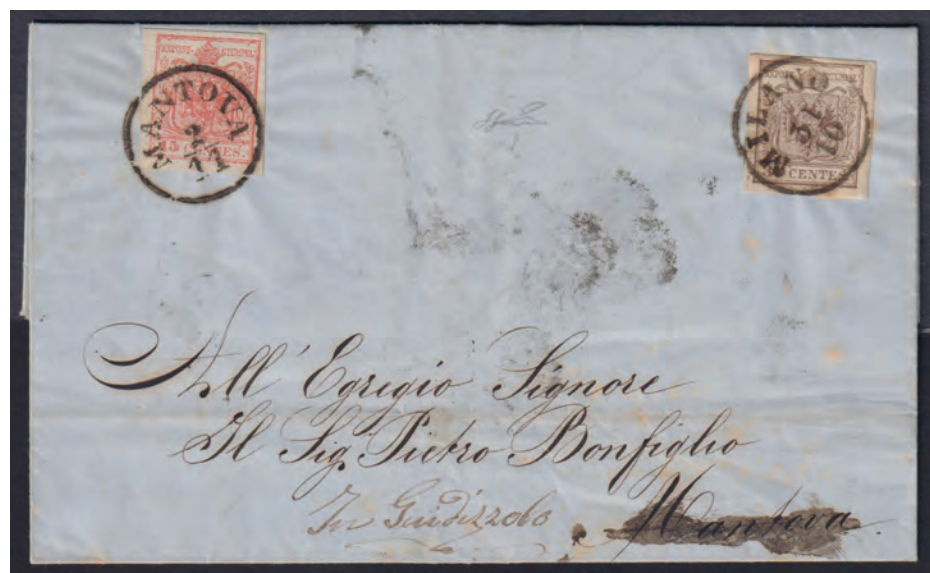 K.K.POST-STEMPEL
15 CENTES.
MANTOVA
MILANO
31
10
CENTES
All' Egregio Signore
Il Sig. Pietro Bonfiglio
In Guidizzolo
Mantova